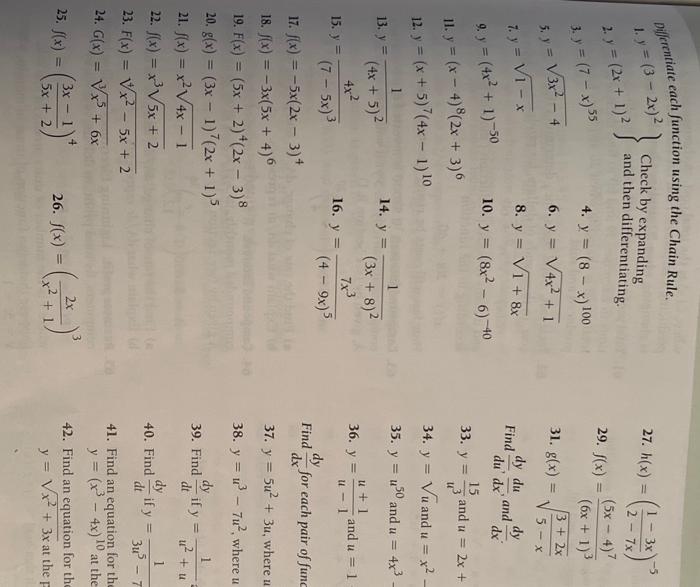 Differentiate each function using the Chain Rule.
1. y = (3 − 2x)²
2. y = (2x + 1)²
Check by expanding
and then differentiating.
3. y = (7 − x)⁵⁵
4. y = (8 − x)¹⁰⁰
5. y = √(3x² − 4)
6. y = √(4x² + 1)
7. y = √(1 − x)
8. y = √(1 + 8x)
9. y = (4x² + 1)⁻⁵⁰
10. y = (8x² − 6)⁻⁴⁰
11. y = (x − 4)⁸(2x + 3)⁶
12. y = (x + 5)⁷(4x − 1)¹⁰
13. y = 1/(4x + 5)²
14. y = 1/(3x + 8)²
15. y = 4x²/(7 − 5x)³
16. y = 7x³/(4 − 9x)⁵
17. f(x) = −5x(2x − 3)⁴
18. f(x) = −3x(5x + 4)⁶
19. F(x) = (5x + 2)⁴(2x − 3)⁸
20. g(x) = (3x − 1)⁷(2x + 1)⁵
21. f(x) = x²√(4x − 1)
22. f(x) = x³√(5x + 2)
23. F(x) = ⁴√(x² − 5x + 2)
24. G(x) = ³√(x⁵ + 6x)
25. f(x) = ((3x − 1)/(5x + 2))⁴
26. f(x) = (2x/(x² + 1))³
27. h(x) = ((1 − 3x)/(2 − 7x))⁻⁵
29. f(x) = (5x − 4)⁷/(6x + 1)³
31. g(x) = √((3 + 2x)/(5 − x))
Find dy/du, du/dx, and dy/dx
33. y = 15/u³ and u = 2x +
34. y = √u and u = x² −
35. y = u⁵⁰ and u = 4x³ −
36. y = (u + 1)/(u − 1) and u = 1
Find dy/dx for each pair of func
37. y = 5u² + 3u, where u
38. y = u³ − 7u², where u
39. Find dy/dt if y = 1/(u² + u)
40. Find dy/dt if y = 1/(3u⁵ − 7
41. Find an equation for the
y = (x³ − 4x)¹⁰ at the
42. Find an equation for the
y = √(x² + 3x) at the p